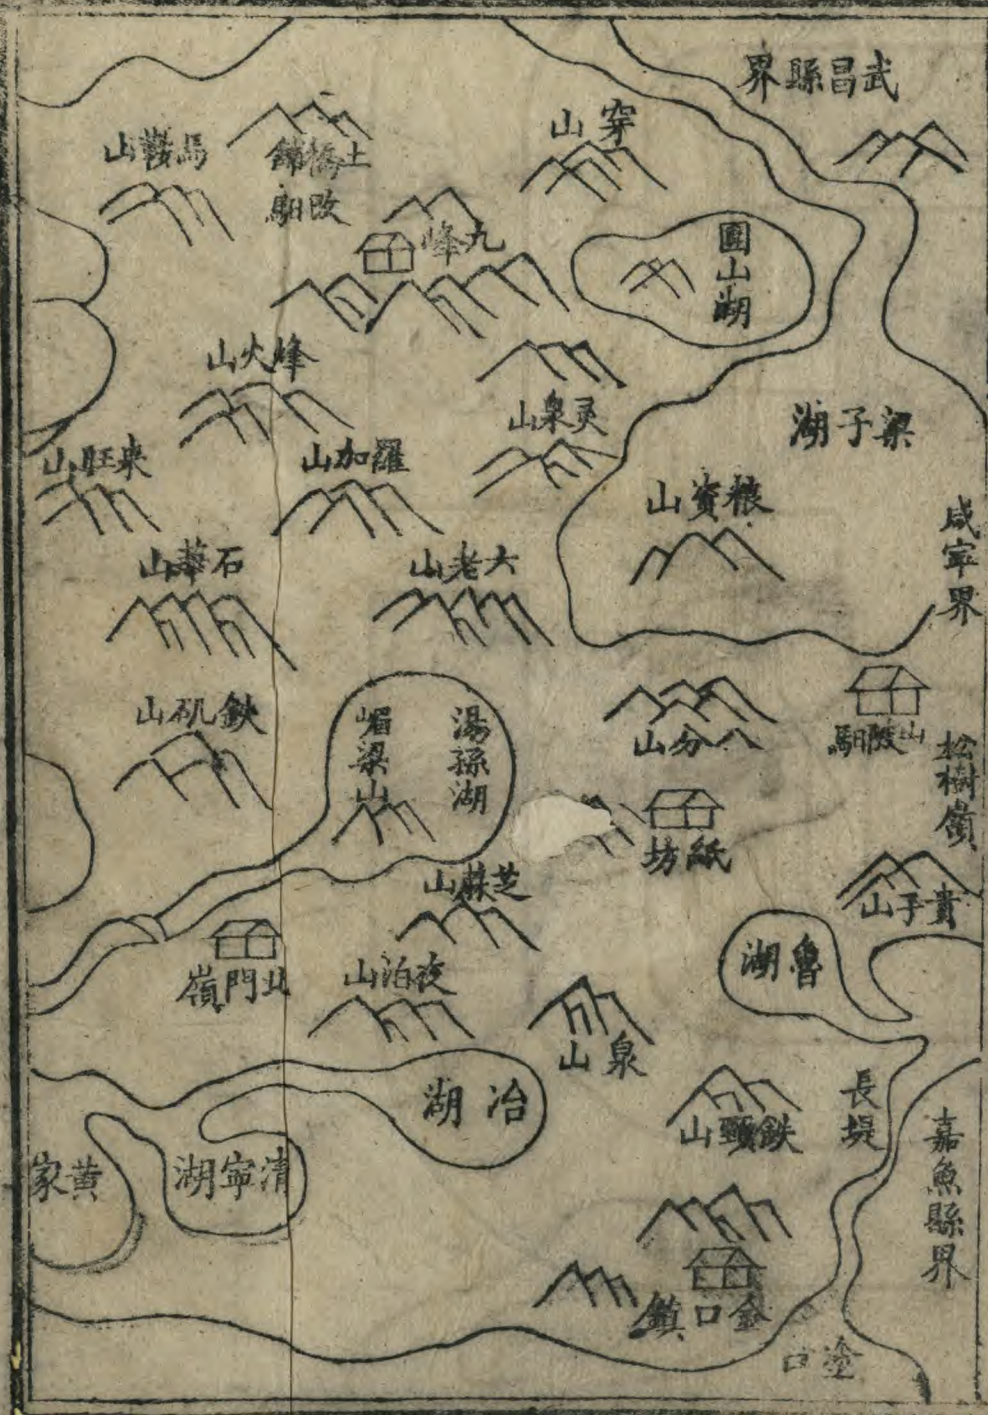 武昌縣界
穿山
土橋鋪
馬鞍山
九峰
圓山湖
烽火山
灵泉山
梁子湖
來旺山
羅加山
粮資山
咸寧界
石華山
大老山
鉄矶山
嵋梁山
湯孫湖
八分山
山陂馹
松樹嶺
紙坊
芝蔴山
貴子山
魯湖
北門嶺
夜泊山
泉山
冶湖
長堤
鉄頸山
嘉魚縣界
黄家
清寧湖
金口鎮
塗口